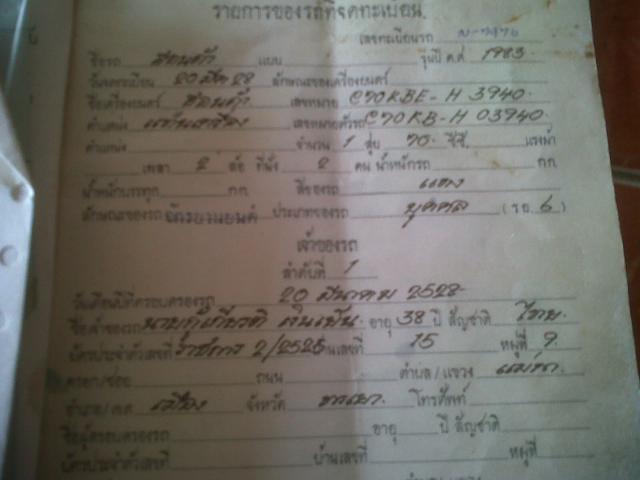 รายการของรถที่จดทะเบียน
เลขทะเบียนรถ
ชื่อรถ ฮอนด้า แบบ รุ่นปี ค.ศ. 1983
วันจดทะเบียน 20 มีค 28 ลักษณะของเครื่องยนต์
ชื่อเครื่องยนต์ ฮอนด้า เลขหมาย C70KBE-H 3940
ตำแหน่ง เลขหมายตัวรถ C70KB-H 03940.
ตำแหน่ง จำนวน 1 สูบ 70. ซีซี. แรงม้า
เพลา 2 ล้อ ที่นั่ง 2 คน น้ำหนักรถ กก.
น้ำหนักบรรทุก กก. สีของรถ แดง
ลักษณะของรถ จักรยานยนต์ ประเภทของรถ บุคคล (รย. 6)
เจ้าของรถ
ลำดับที่ 1
วันเดือนปีที่ครอบครองรถ 20 มีนาคม 2528
ชื่อเจ้าของรถ อายุ 38 ปี สัญชาติ ไทย.
บัตรประจำตัวเลขที่ บ้านเลขที่ 15 หมู่ที่ 9.
ตรอก/ซอย ถนน ตำบล/แขวง
อำเภอ/เขต เมือง จังหวัด โทรศัพท์
ชื่อผู้ครอบครองรถ อายุ ปี สัญชาติ
บัตรประจำตัวเลขที่ บ้านเลขที่ หมู่ที่